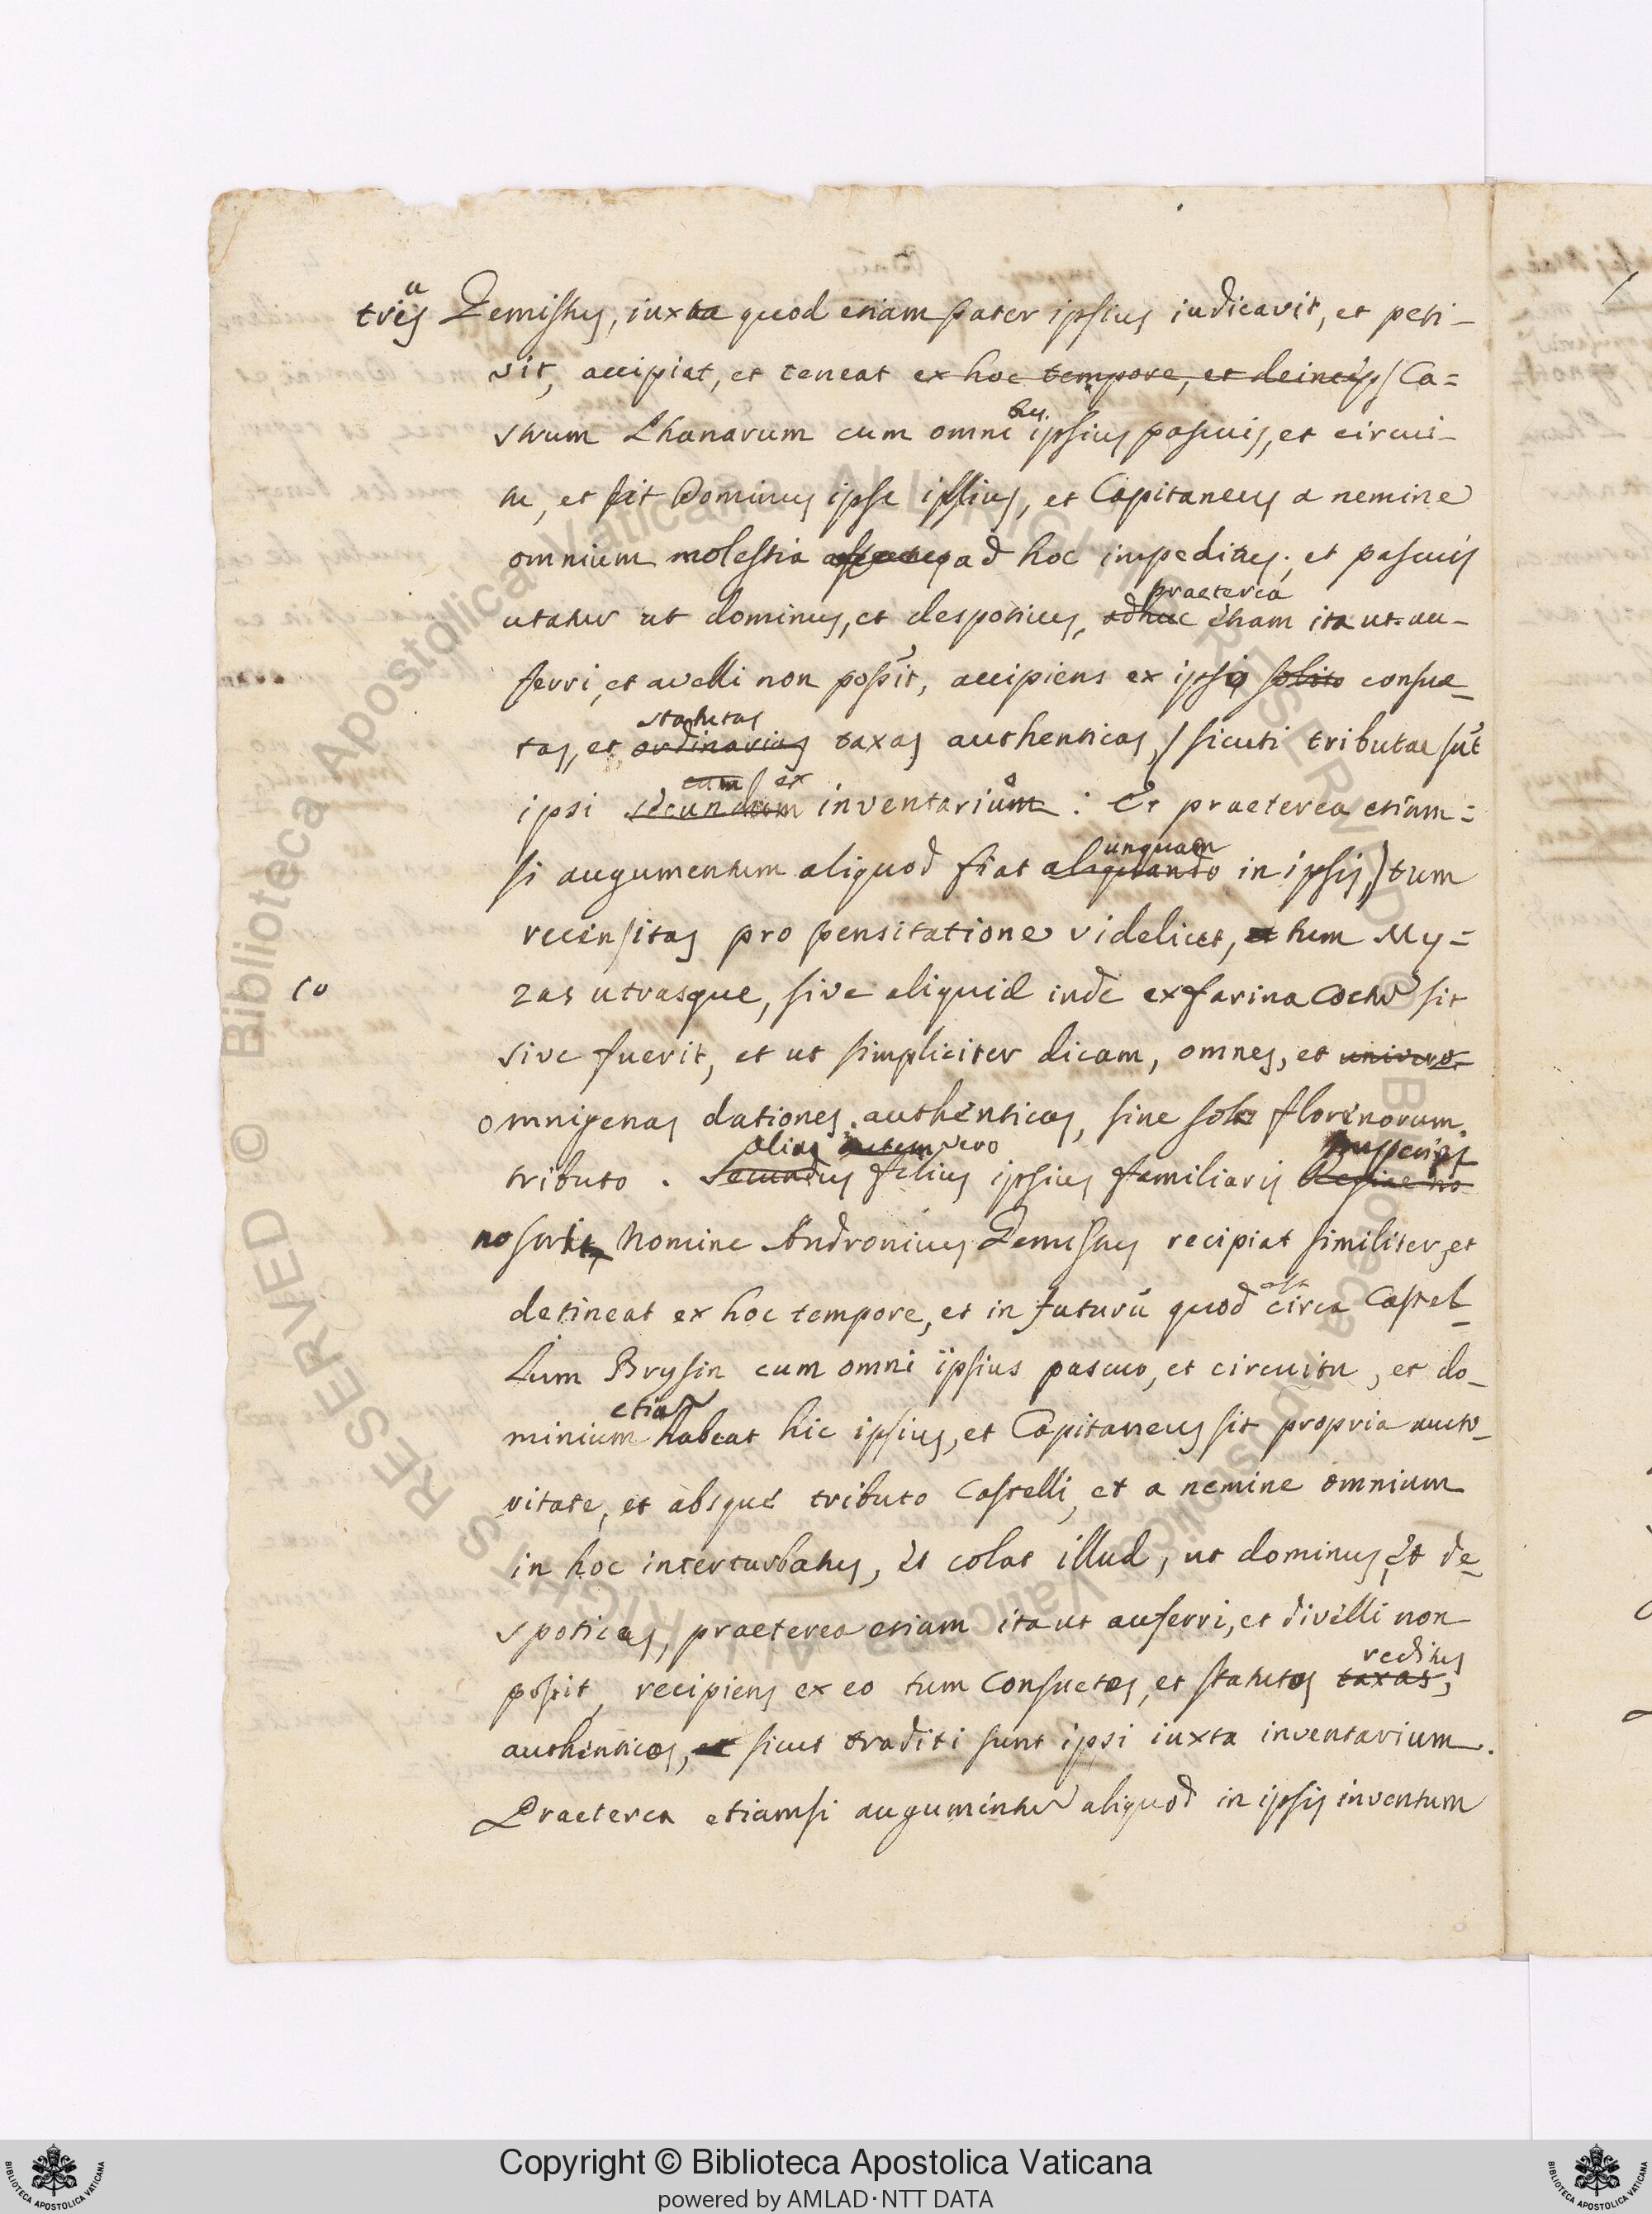 trius Gemistus, iuxta quod etiam pater ipsius iudicavit, et peti-
vit, accipiat, et teneat ex hoc tempore, et deinceps Ca=
strum Phanarum cum omni bus. ipsius pascuis, et circui-
tu, et sit Dominus ipse illius, et Capitaneus a nemine
omnium molestia ad hoc impeditus; et pascuis
praeterea
utatur ut dominus, et despoticus, adhuc etiam ita ut au-
ferri, et avelli non possit, accipiens ex ipso solito consue-
statutas
tas, et ordinarias taxas authenticas, sicuti tributae sūt
cum ex
ipsi secundum inventarium : Et praeterea etiam=
unquam
si augumentum aliquod fiat aliquando in ipsis) tum
recensitas pro pensitatione videlicet, et tum My=
10 zas utrasque, sive aliquid inde ex farina sit
sive fuerit, et ut simpliciter dicam, omnes, et
omnigenas dationes authenticas, sine solo florenorum
alius autem vero
tributo . Secundus filius ipsius familiaris Regiae no
nomine Andronicus Gemistus recipiat similiter, et
est
detineat ex hoc tempore, et in futurū quod circa Castel-
lum Brysin cum omni ipsius pascuo, et circuitu, et do-
etiā
minium habeat hic ipsius, et Capitaneus sit propria aucto-
ritate, et absque tributo Castelli, et a nemine omnium
in hoc interturbatus, et colat illud, ut dominus, et de-
spoticus, praeterea etiam ita ut auferri, et divelli non
reditus
possit, recipiens ex eo tum consuetos, et statutos taxas,
authenticos, et sicut traditi sunt ipsi iuxta inventarium.
Praeterea etiamsi augumentum aliquod in ipsis inventum
© Biblioteca Apostolica Vaticana ALL RIGHTS RESERVED
Copyright © Biblioteca Apostolica Vaticana
powered by AMLAD·NTT DATA
BIBLIOTECA APOSTOLICA VATICANA
BIBLIOTECA APOSTOLICA VATICANA